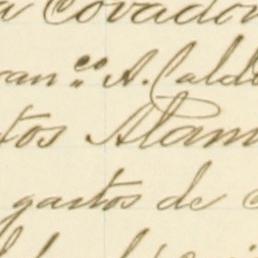 a Covadon
ran.co A. Calde
tos Alam
gastos de